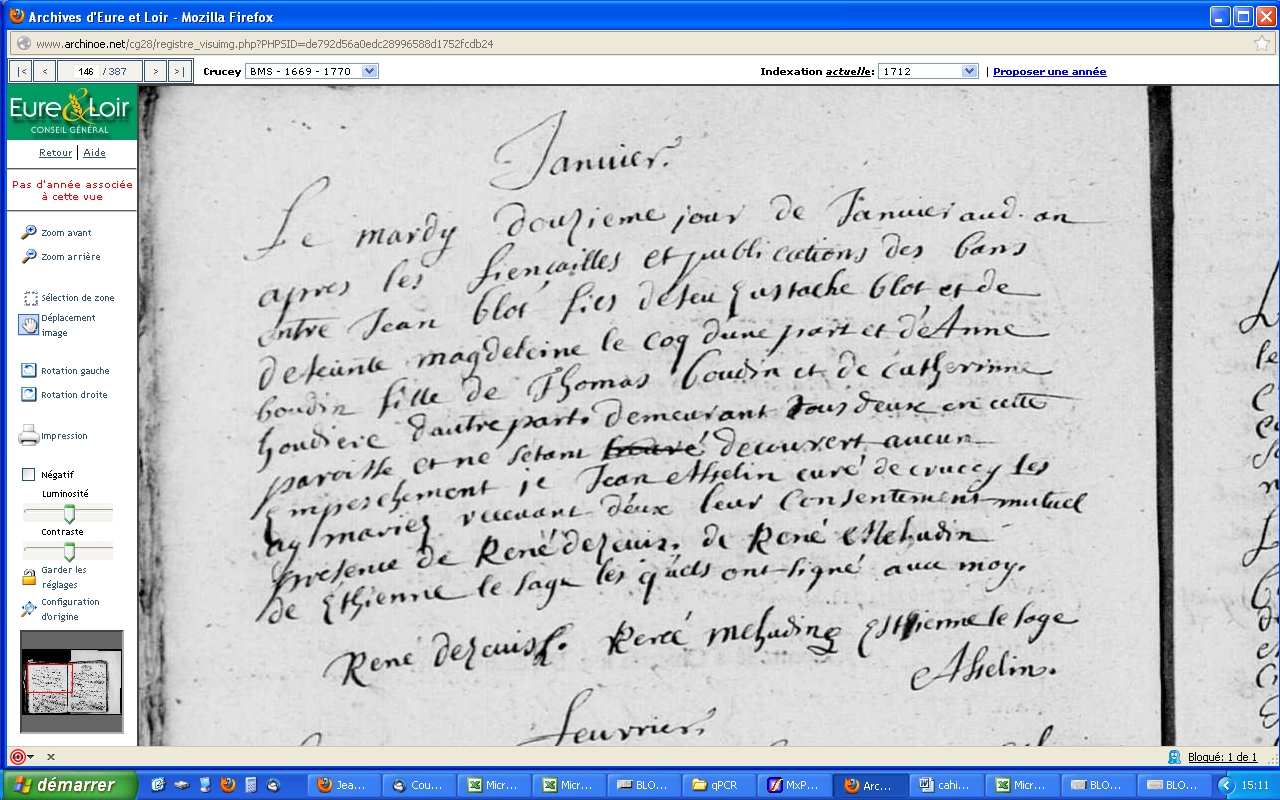 Archives d'Eure et Loir - Mozilla Firefox
www.archinoe.net/cg28/registre_visuimg.php?PHPSID=de792d56a0edc28996588d1752fcdb24
|< < 146 / 387 > >| Crucey BMS - 1669 - 1770 Indexation actuelle: 1712 | Proposer une année
Eure & Loir
CONSEIL GÉNÉRAL
Retour | Aide
Pas d'année associée
à cette vue
Zoom avant
Zoom arrière
Sélection de zone
Déplacement
image
Rotation gauche
Rotation droite
Impression
Négatif
Luminosité
Contraste
Garder les
réglages
Configuration
d'origine
Januier.
Le mardy douzieme jour de Januier aud. an
apres les fiençailles et publications des bans
entre Jean blot fils de feu Eustache blot et de
defeunte magdeleine le coq dune part et de Anne
boudin fille de Thomas boudin et de catherinne
houdiere dautre part. demeurant tous deux en cette
paroisse et ne sétant trouvé decouvert aucun
Empeschement je Jean Asselin curé de crucey les
ay mariez recevant d'eux leur Consentement mutuel
presence de René dezeuis. de René Mehudin
de Esthienne le sage les quels ont signé avec moy.
René dezeuis. René mehudin Esthienne le sage
Asselin.
feuvrier.
Bloqué: 1 de 1
démarrer Jea... Cou... Micr... Micr... BLO... qPCR MxP... Arc... cahi... Micr... BLO... BLO... 15:11